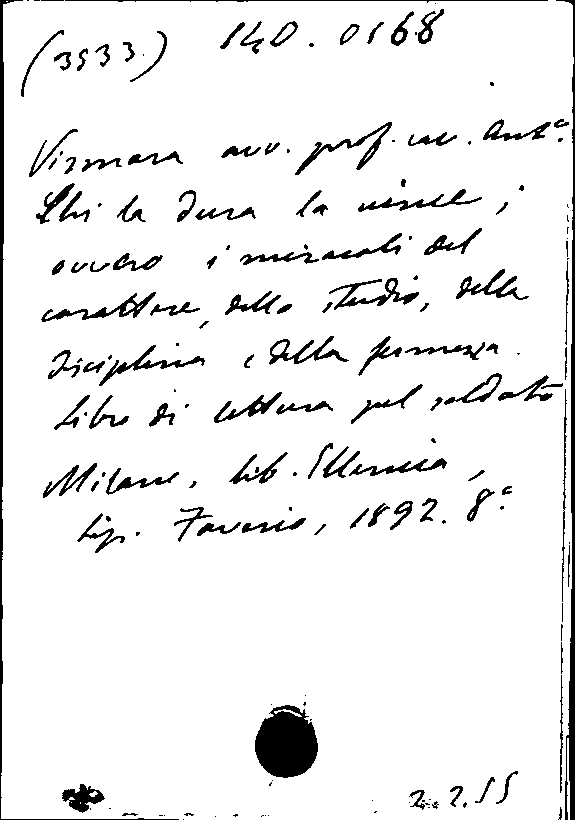 (3533) 140.0168
Vismara avv. prof. cav. Ant°.
Chi la dura la vince;
ovvero i miracoli del
carattere, dello studio, della
disciplina e della fermezza.
Libro di lettura pel soldato
Milano, lib.
tip. Faverio, 1892. 8°.
2.2.55